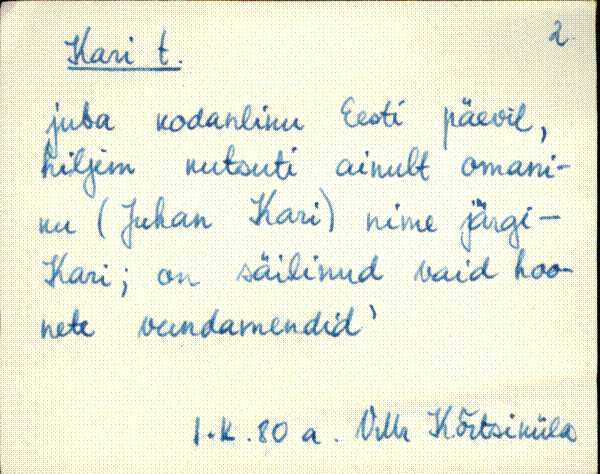 2.
Kari t.
juba kodanliku Eesti päevil,
hiljem kutsuti ainult omani-
ku (Juhan Kari) nime järgi -
Kari; on säilinud vaid hoo-
nete vundamendid'
1.k. 80 a. Kõrtsiküla